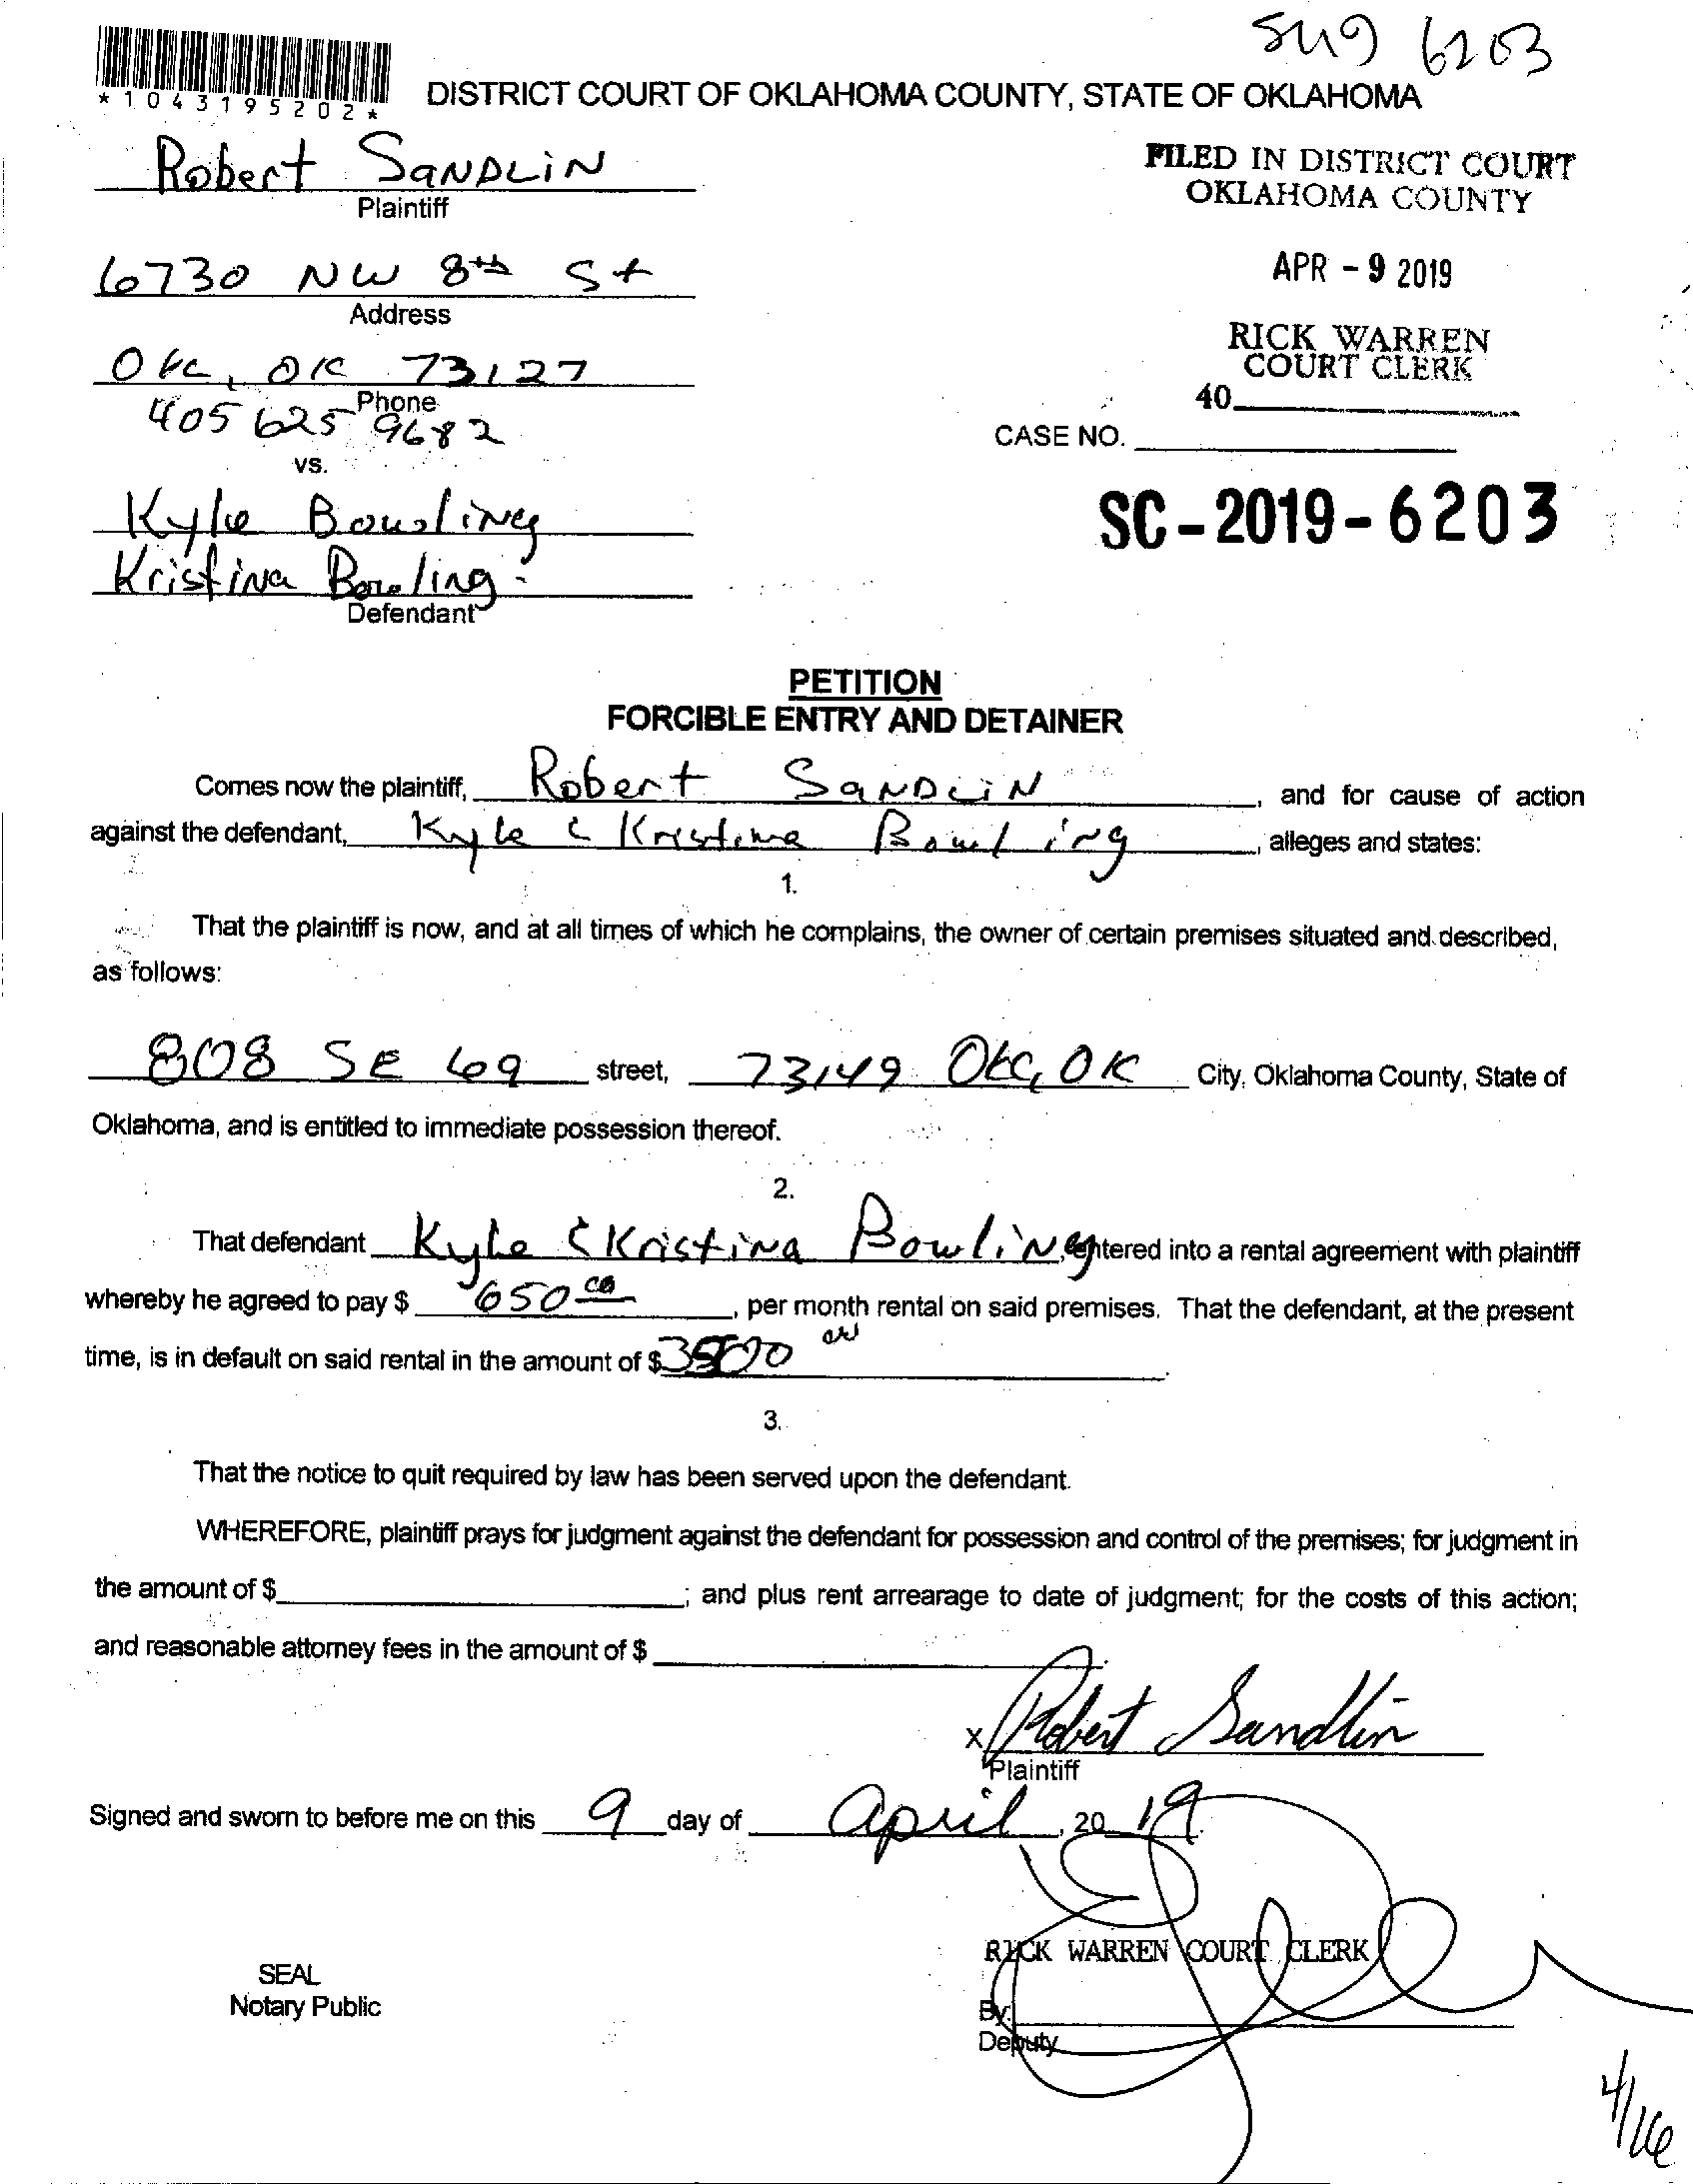 SM19 6203
*1043195202*
DISTRICT COURT OF OKLAHOMA COUNTY, STATE OF OKLAHOMA
Robert SANDLIN
Plaintiff
FILED IN DISTRICT COURT
OKLAHOMA COUNTY
6730 NW 8th St
Address
APR - 9 2019
OKC, OK 73127
Phone
405 625 9682
RICK WARREN
COURT CLERK
40
CASE NO.
vs.
Kyle Bowling
Kristina Bowling
Defendant
SC-2019-6203
PETITION
FORCIBLE ENTRY AND DETAINER
Comes now the plaintiff, Robert SANDLIN, and for cause of action
against the defendant, Kyle & Kristina Bowling, alleges and states:
1.
That the plaintiff is now, and at all times of which he complains, the owner of certain premises situated and described,
as follows:
808 SE 69 street, 73149 OKC, OK City, Oklahoma County, State of
Oklahoma, and is entitled to immediate possession thereof.
2.
That defendant Kyle & Kristina Bowling, entered into a rental agreement with plaintiff
whereby he agreed to pay $ 650 00, per month rental on said premises. That the defendant, at the present
time, is in default on said rental in the amount of $
3.
That the notice to quit required by law has been served upon the defendant.
WHEREFORE, plaintiff prays for judgment against the defendant for possession and control of the premises; for judgment in
the amount of $ ; and plus rent arrearage to date of judgment; for the costs of this action;
and reasonable attorney fees in the amount of $
x Robert Sandlin
Plaintiff
Signed and sworn to before me on this 9 day of April, 20 19.
RICK WARREN COURT CLERK
SEAL
Notary Public
By:
Deputy
4/16